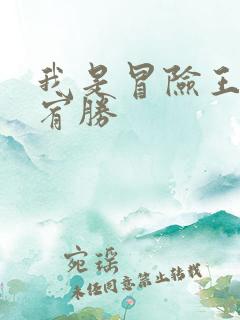 我是冒險王
宥勝
宛瑤
未经同意禁止转载